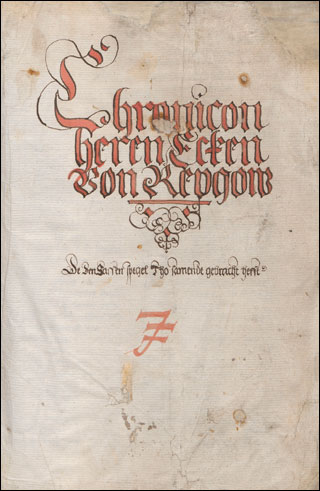 Chronicon
heren Ecken
Von Repgow
De den Sassen speigel Tho samende gebracht hefft